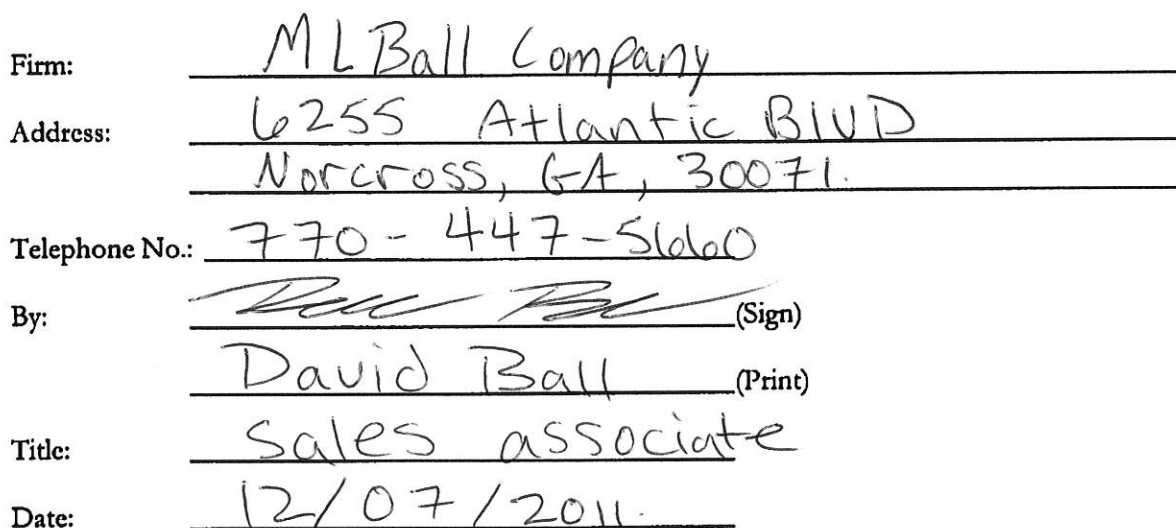 Firm: ML Ball Company
Address: 6255 Atlantic BlVD
Norcross, GA, 30071.
Telephone No.: 770-447-5660
By: (Sign)
David Ball (Print)
Title: Sales associate
Date: 12/07/2011.